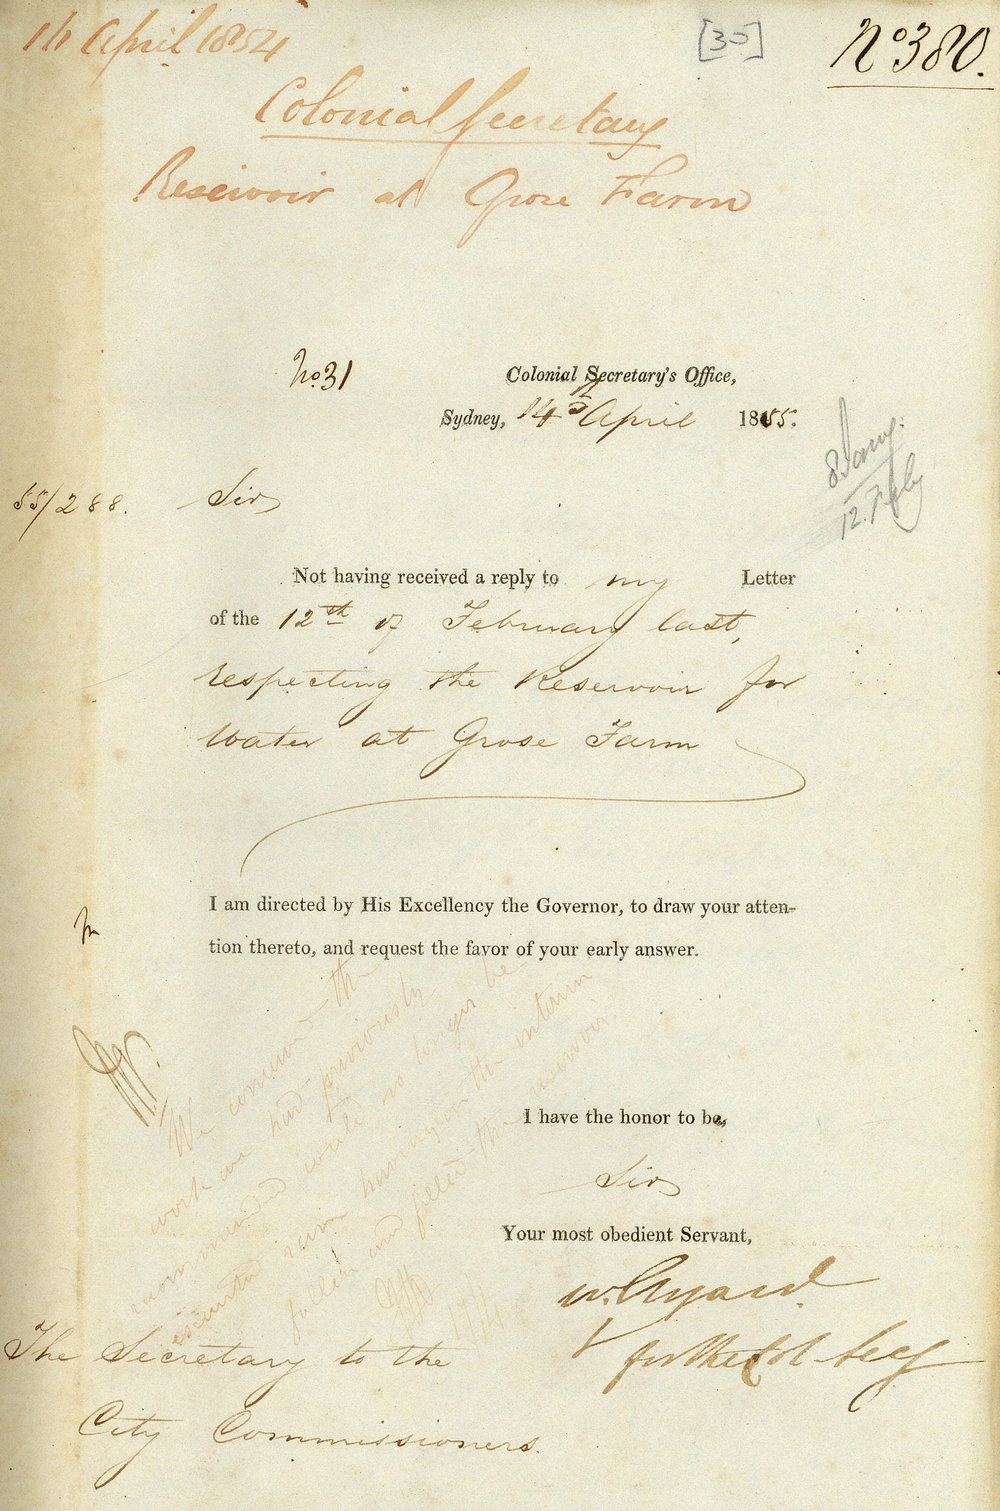 14 April 1854
[35]
No 380.
Colonial Secretary
Reseivoir at Grose Farm
No 31
Colonial Secretary's Office,
Sydney, 14th April 1855.
8 Jany.
12. Feby
55/288.
Sir
Not having received a reply to my Letter
of the 12th of February last,
respecting the Reservoir for
Water at Grose Farm
I am directed by His Excellency the Governor, to draw your atten-
tion thereto, and request the favor of your early answer.
We conceived the
work we had previously
recommended could no longer be
executed rain having in the interim
fallen and filled the reservoir.
I have the honor to be,
Sir
Your most obedient Servant,
W. Elyard
for the Col Secy
The Secretary to the
City Commissioners.